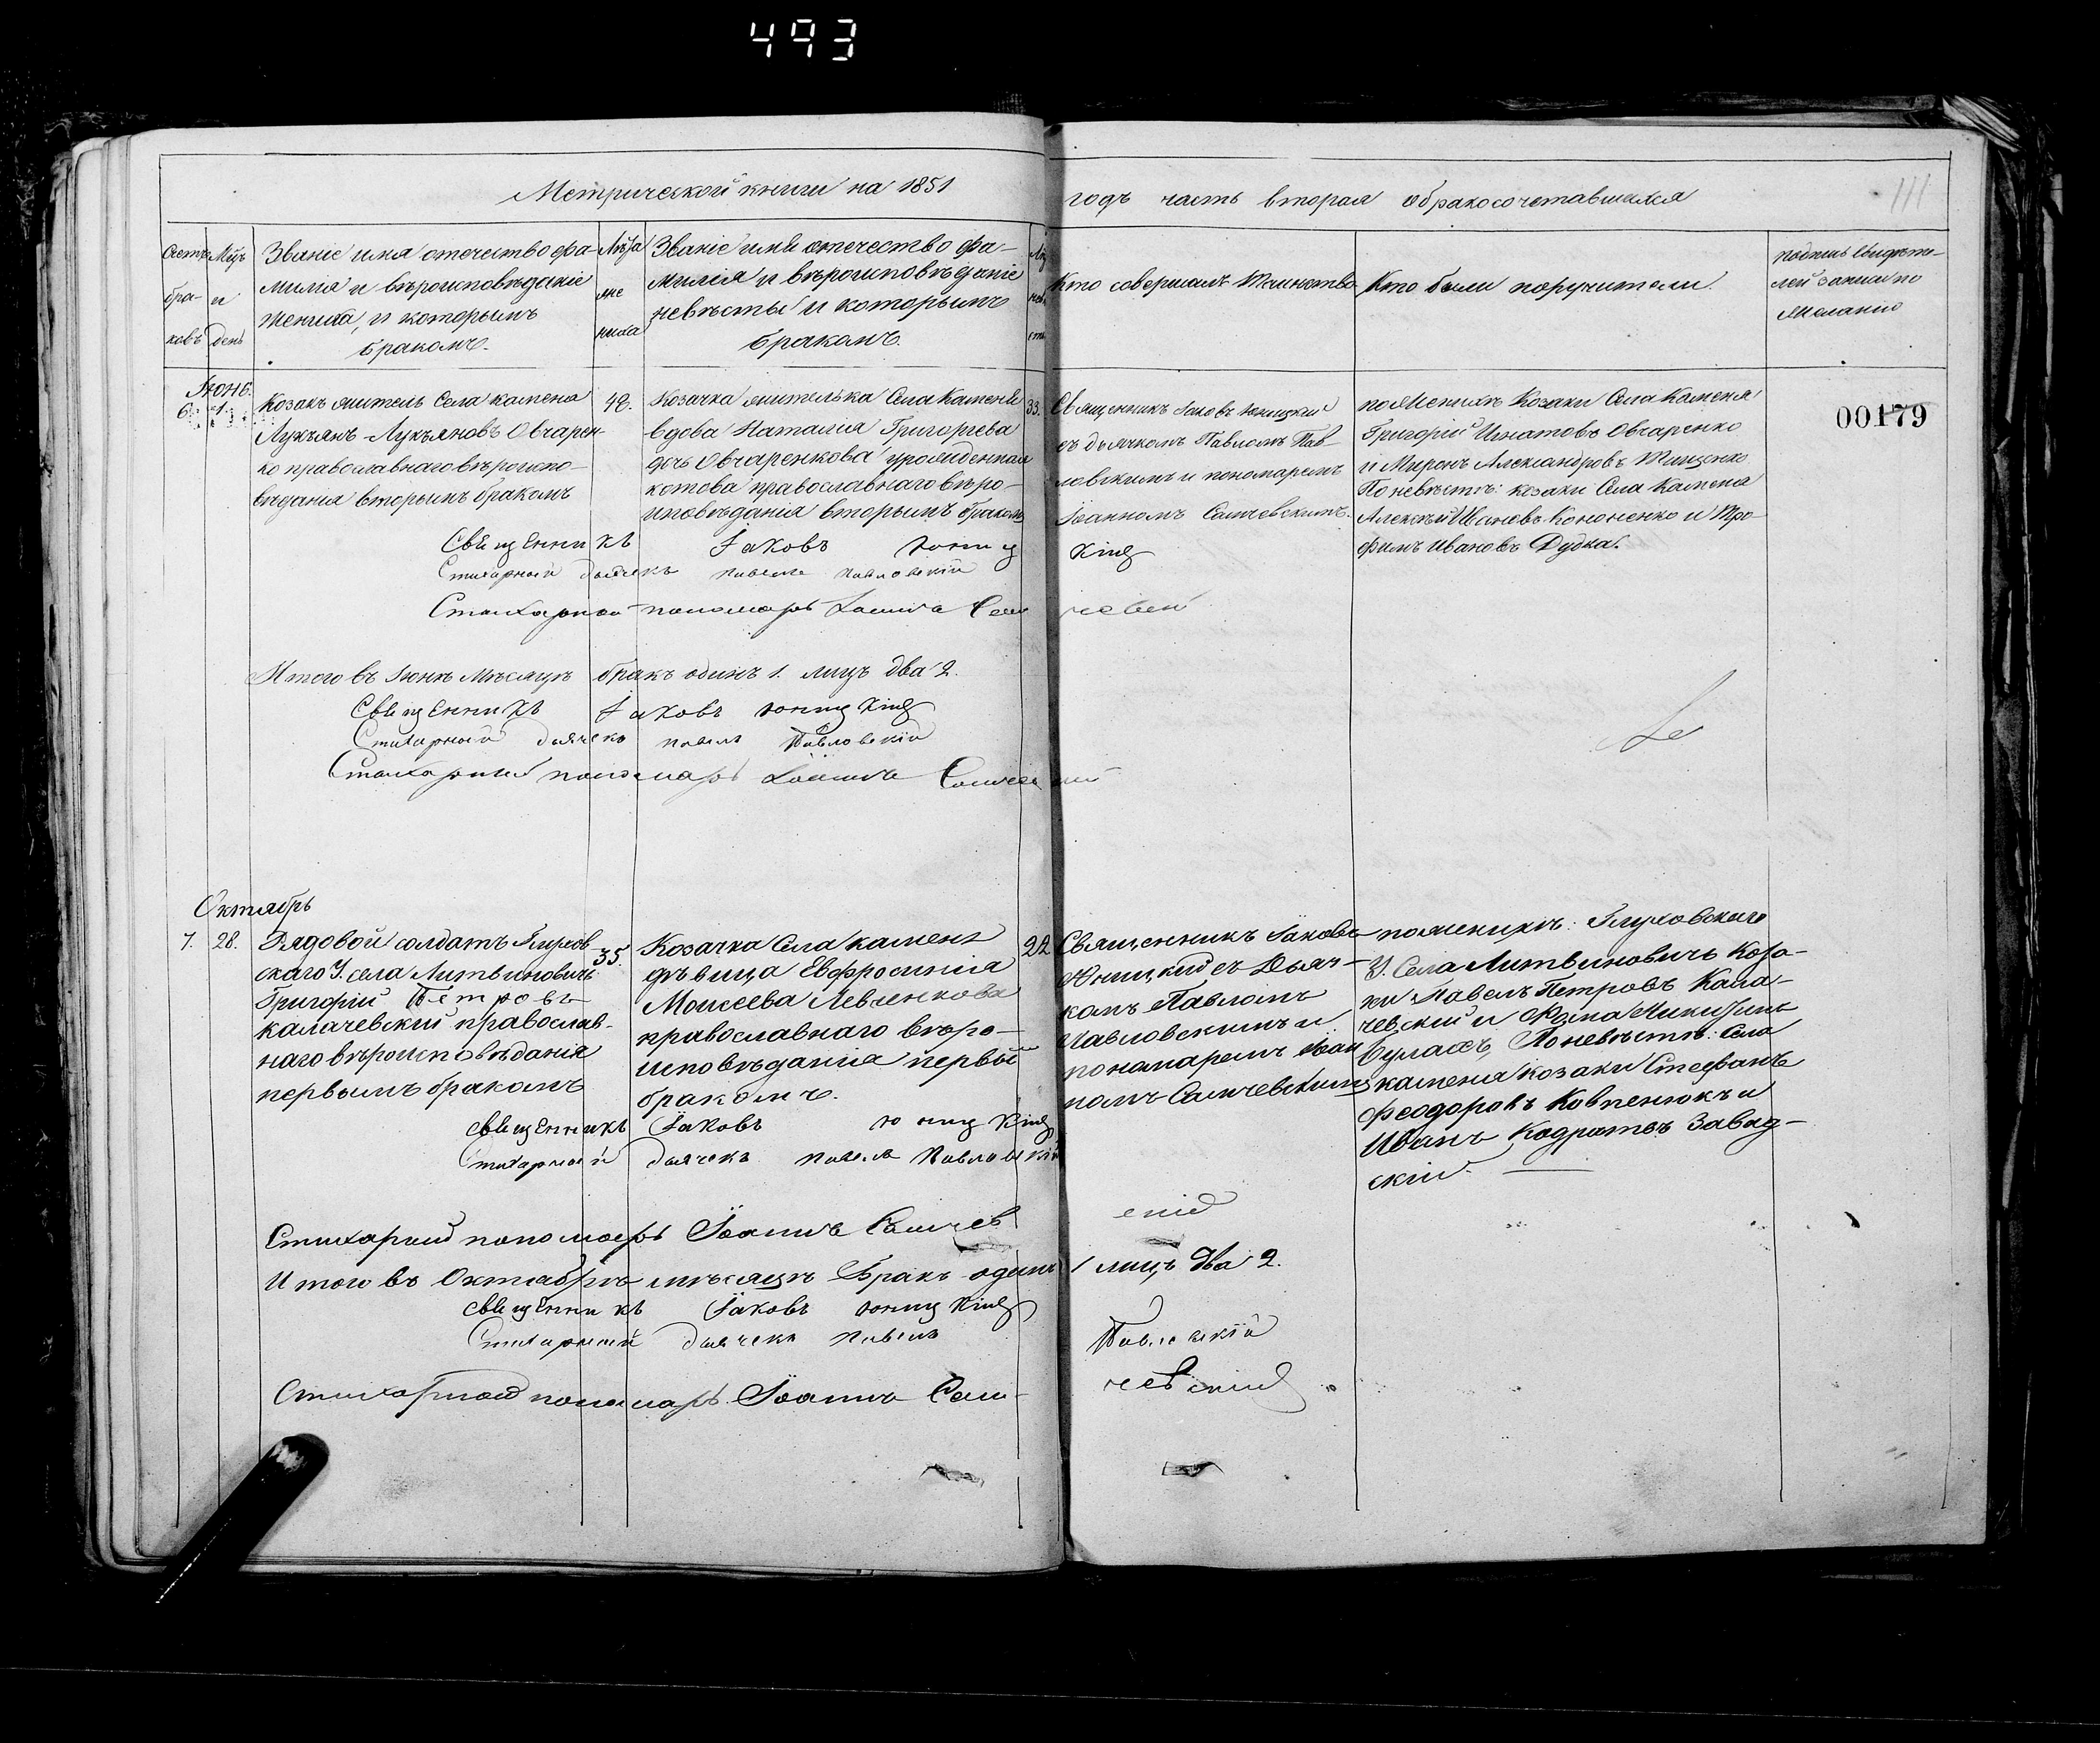 493
Метрической книги на 1851
годъ часть вторая обракосочетавшихся
111
Счетъ браковъ
Мцъ и день
Званіе имя отечество фа-
милія и вѣроисповѣданіе
жениха, и которымъ
бракомъ.
Лѣта жениха
Званіе имя отечество фа-
милія и вѣроисповѣданіе
невѣсты и которымъ
бракомъ.
Кто совершалъ Таинство
Кто были поручители.
подпись свидѣте-
лей записи по
желанію
00179
Іюнь.
6. 1.
Козакъ житель Села каменя
Лукъянъ Лукъяновъ Овчарен-
ко православнаго вѣроиспо-
вѣданія вторымъ бракомъ
42.
Козачка жителька Села Каменя
вдова Наталия Григорьева
дочь Овчаренкова урожденная
котова православнаго вѣро-
исповѣданія вторымъ бракомъ
33.
Священникъ Іаковъ Юницкій
съ дьячкомъ Павломъ Пав-
ловскимъ и пономаремъ
Іоанномъ Самчевскимъ.
по Женихѣ Козаки Села Каменя
Григорій Игнатовъ Овчаренко
и Миронъ Александровъ Тищенко
По невѣстѣ: козаки Села Каменя
Алексѣй Ивановъ Кононенко и Тро-
фимъ Ивановъ Дудка.
Священникъ Іаковъ Юницкій
Стихарный дьячекъ павелъ павловскій
Стихарный пономарь Іоаннъ Самчевскій
Итого въ Іюнѣ Мѣсяцѣ бракъ одинъ 1. лицъ два 2.
Священникъ Іаковъ Юницкій
Стихарный дьячекъ павелъ Павловскій
Стихарный пономарь Іоаннъ Самчевскій
Октябрь
7. 28.
Рядовой солдатъ Глухов
скаго У. села Литвиновичъ
Григорій Петровъ
калачевский православ-
наго вѣроисповѣданія
первымъ бракомъ
35.
Козачка Села каменя
дѣвица Евфросинія
Моисеева Левченкова
православнаго вѣро-
исповѣданія первый
бракомъ.
22
Священникъ Іаковъ
Юницкій съ Дьяч-
комъ Павломъ
Павловскимъ и
пономаремъ Іоан
номъ Самчевскимъ
по женихѣ: Глуховскаго
У. Села Литвиновичъ Коза-
ки Павелъ Петровъ Кала-
чевский и Фома Никитинъ
Булахъ, По невѣстѣ: Села
каменя козаки Стефанъ
Феодоровъ Ковпенюкъ и
Иванъ Кодратовъ Завад-
скій.
священникъ Іаковъ Юницкій
Стихарный дьячекъ павелъ Павловскій
Стихарный пономарь Іоаннъ Самчевскій
Итого въ Октябрѣ мѣсяцѣ Бракъ одинъ 1 лицъ два 2.
священникъ Іаковъ Юницкій
Стихарный дьячекъ павелъ Павловскій
Стихарный пономарь Іоаннъ Самчевскій